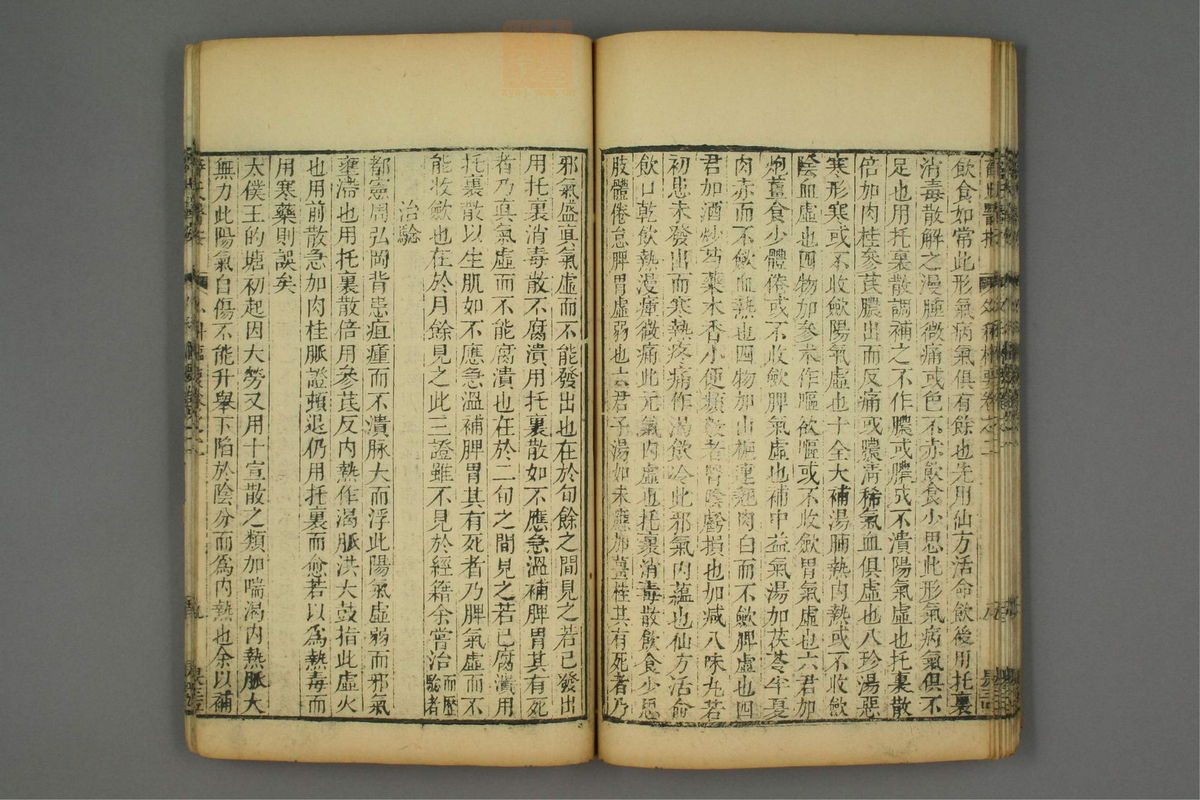 飲食如常此形氣病氣俱有餘也先用仙方活命飲後用托裏
消毒散解之漫腫微痛或色不赤飲食少思此形氣病氣俱不
足也用托裏散調補之不作膿或膿成不潰陽氣虛也托裏散
倍加肉桂參芪膿出而反痛或膿清稀氣血俱虛也八珍湯惡
寒形寒或不收斂陽氣虛也十全大補湯腩熱內熱或不收斂
陰血虛也四物加參朮作嘔欲嘔或不收斂胃氣虛也六君加
炮薑食少體倦或不收斂脾氣虛也補中益氣湯加茯苓半夏
肉赤而不斂血熱也四物加山梔連翹肉白而不斂脾虛也四
君加酒炒芍藥木香小便頻數者腎陰虧損也加減八味丸若
初患未發出而寒熱疼痛作渴飲冷此邪氣內蘊也仙方活命
飲口乾飲熱漫腫微痛此元氣內虛也托裏消毒散飲食少思
肢體倦怠脾胃虛弱也六君子湯如未應加薑桂其有死者乃
邪氣盛真氣虛而不能發出也在於旬餘之間見之若已發出
用托裏消毒散不腐潰用托裏散如不應急溫補脾胃其有死
者乃真氣虛而不能腐潰也在於二旬之間見之若已腐潰用
托裏散以生肌如不應急溫補脾胃其有死者乃脾氣虛而不
能收斂也在於月餘見之此三證雖不見於經籍余嘗治而歷驗者
治驗
都憲周弘岡背患疽腫而不潰脉大而浮此陽氣虛弱而邪氣
壅滯也用托裏散倍用參芪反內熱作渴脈洪大鼓指此虛火
也用前散急加肉桂脈證頓退仍用托裏而愈若以為熱毒而
用寒藥則誤矣
太僕王的塘初起因大勞又用十宣散之類加喘渴內熱脈大
無力此陽氣自傷不能升舉下陷於陰分而為內熱也余以補